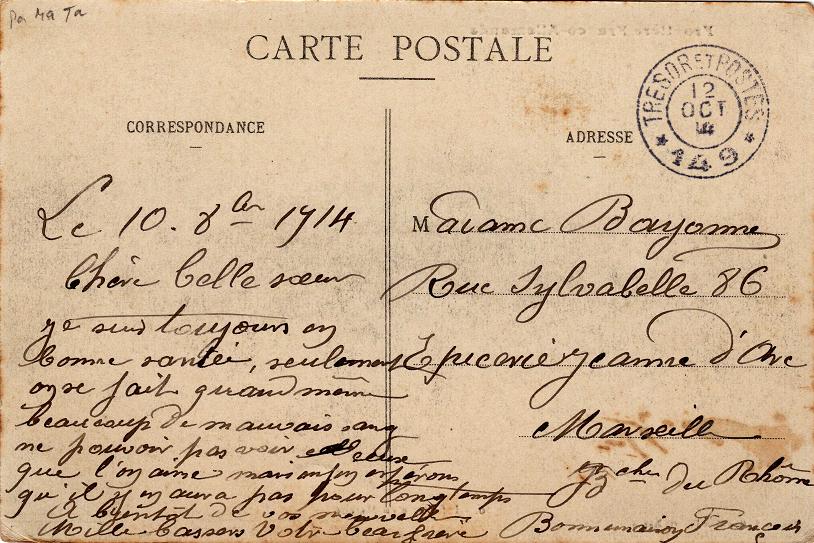 Pa 49 Ta
CARTE POSTALE
TRESOR ET POSTES
12
OCT
14
* 149 *
CORRESPONDANCE
ADRESSE
Le 10. 8bre 1914
Chère Belle sœur
je suis toujours en
bonne santé, seulement
on se fait quand même
beaucoup de mauvais sang
ne pouvoir pas voir ceux
que l'on aime mais enfin espérons
qu'il y en aura pas pour longtemps
A bientôt de vos nouvelle
Mille baisers Votre beau frère
Madame Bayonne
Rue Sylvabelle 86
Epicerie Jeanne d'Arc
Marseille
Bches du Rhône
François